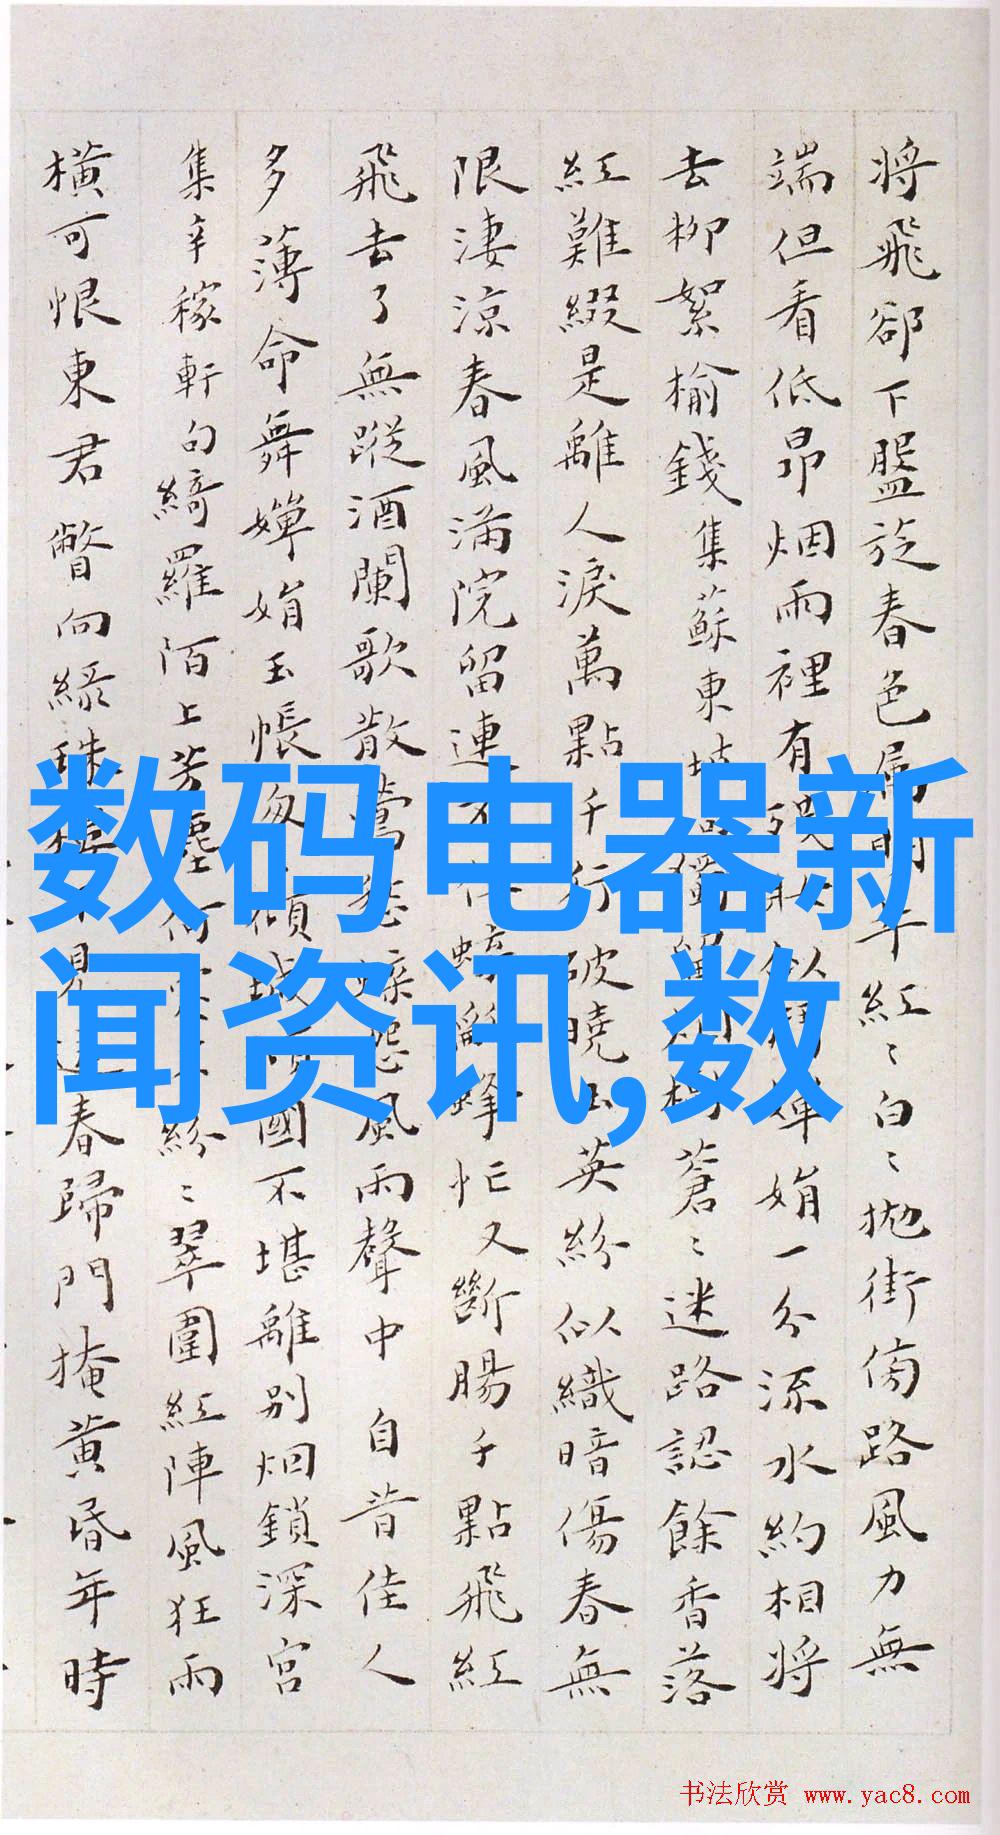 将飛卻下盤旋春色屬明年紅〻白〻抛街傍路風力無
端但看低昂烟雨裡有 嬋娟一分流水約相將
去柳絮榆錢集蘇東坡 蒼〻迷路認餘香落
紅難綴是離人淚萬點千行破曉玉英紛似織暗傷春無
限淒涼春風滿院留連不住蜂鬧蜂忙又斷腸千點飛紅
飛去了無蹤酒闌歌散鶯愁蝶怨風雨聲中 自昔佳人
多薄命舞嬋娟玉帳匆 傾城傾國不堪離別烟鎖深宮
集辛稼軒句綺羅陌上芳塵何 紛〻翠圍紅陣風狂雨
橫可恨東君瞥向綠珠樓 見送春歸門掩黃昏年時
数码电器新
闻资讯,数
书法欣赏 www.yac8.com